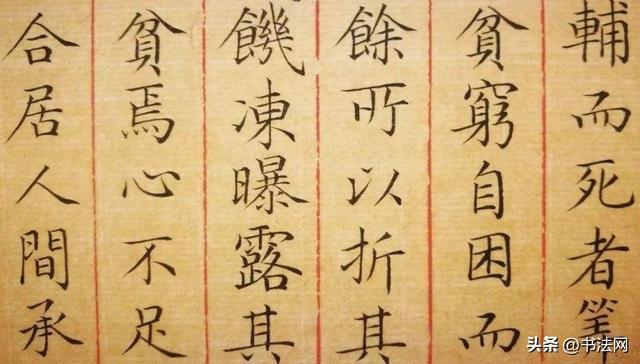 輔而死者
貧窮自困而
餘所以折其
饑凍曝露其
貧焉心不足
合居人間承
头条 @书法网